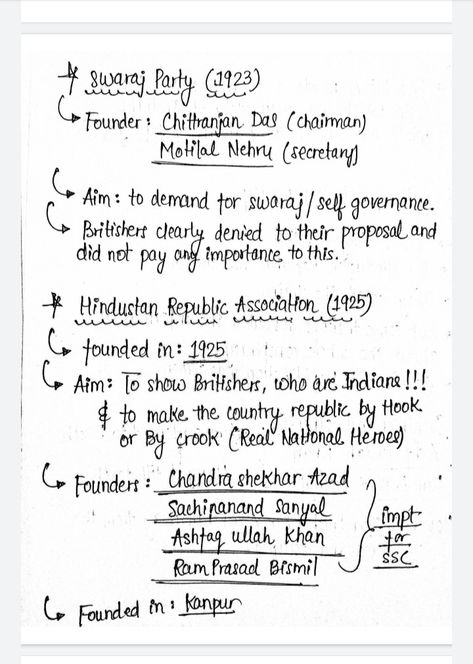 * Swaraj Party (1923)
Founder : Chittranjan Das (chairman)
Motilal Nehru (secretary)
Aim : to demand for swaraj/self governance.
Britishers clearly denied to their proposal and
did not pay any importance to this.
* Hindustan Republic Association (1925)
founded in : 1925
Aim : To show Britishers, who are Indians!!!
& to make the country republic by Hook
or By crook (Real National Heroes)
Founders : Chandra shekhar Azad
Sachinanand Sanyal
Ashfaq ullah Khan
Ram Prasad Bismil
impt
for
SSC
Founded in : Kanpur